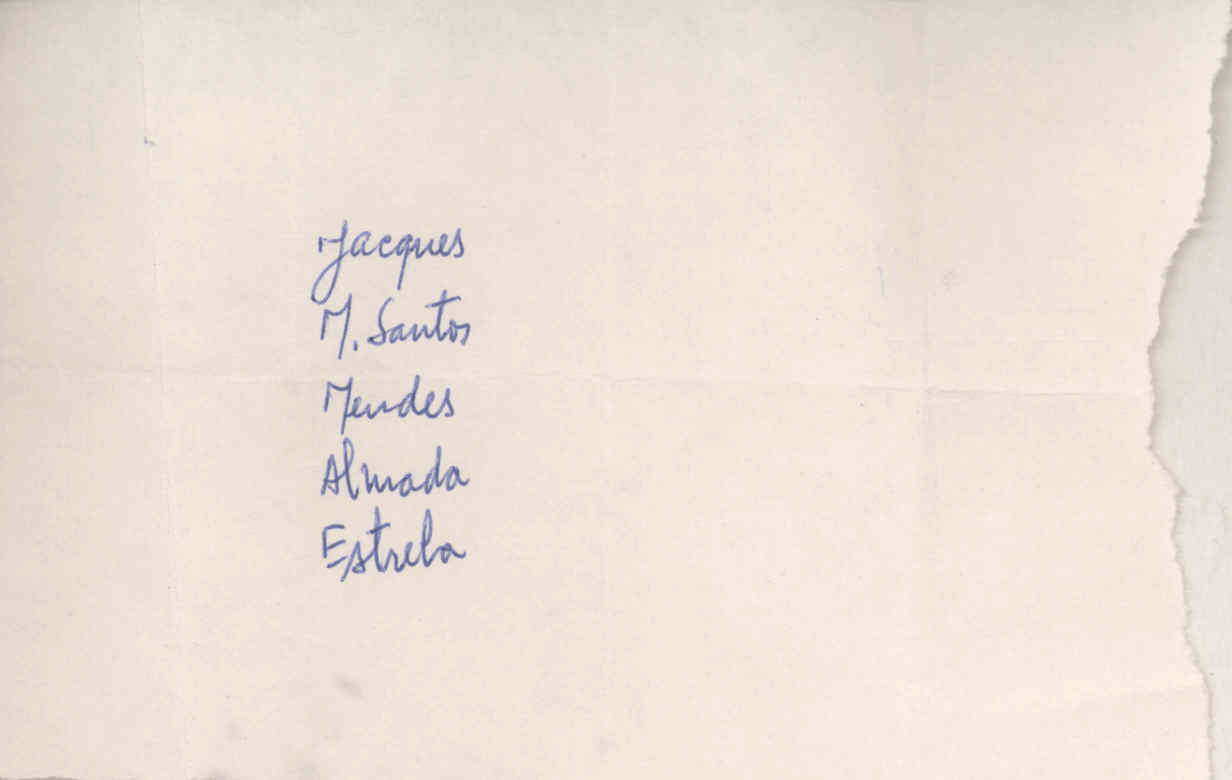 Jacques
M. Santos
Mendes
Almada
Estrela